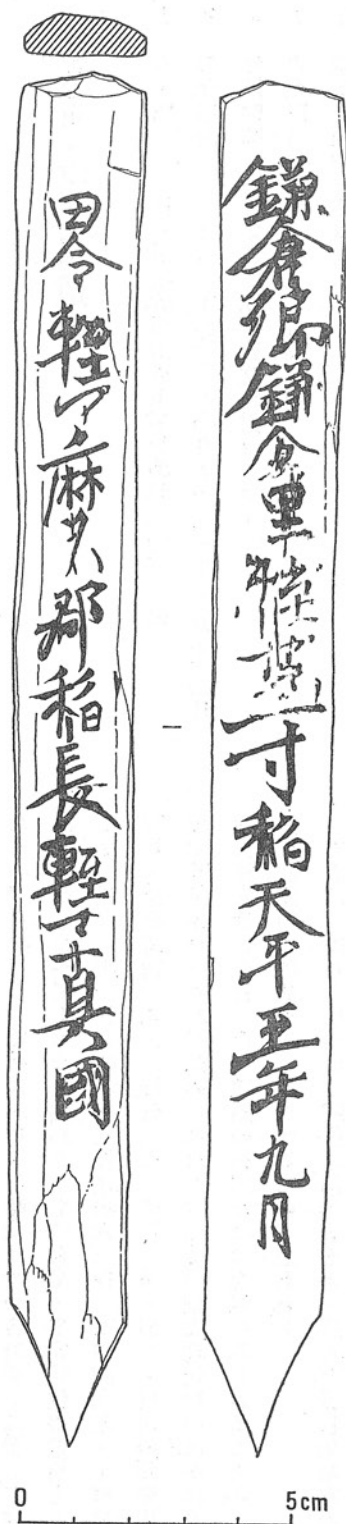 鎌倉郷鎌倉里軽寸稲天平五年九月
田令軽マ麻呂郡稲長軽マ真國
0 5cm